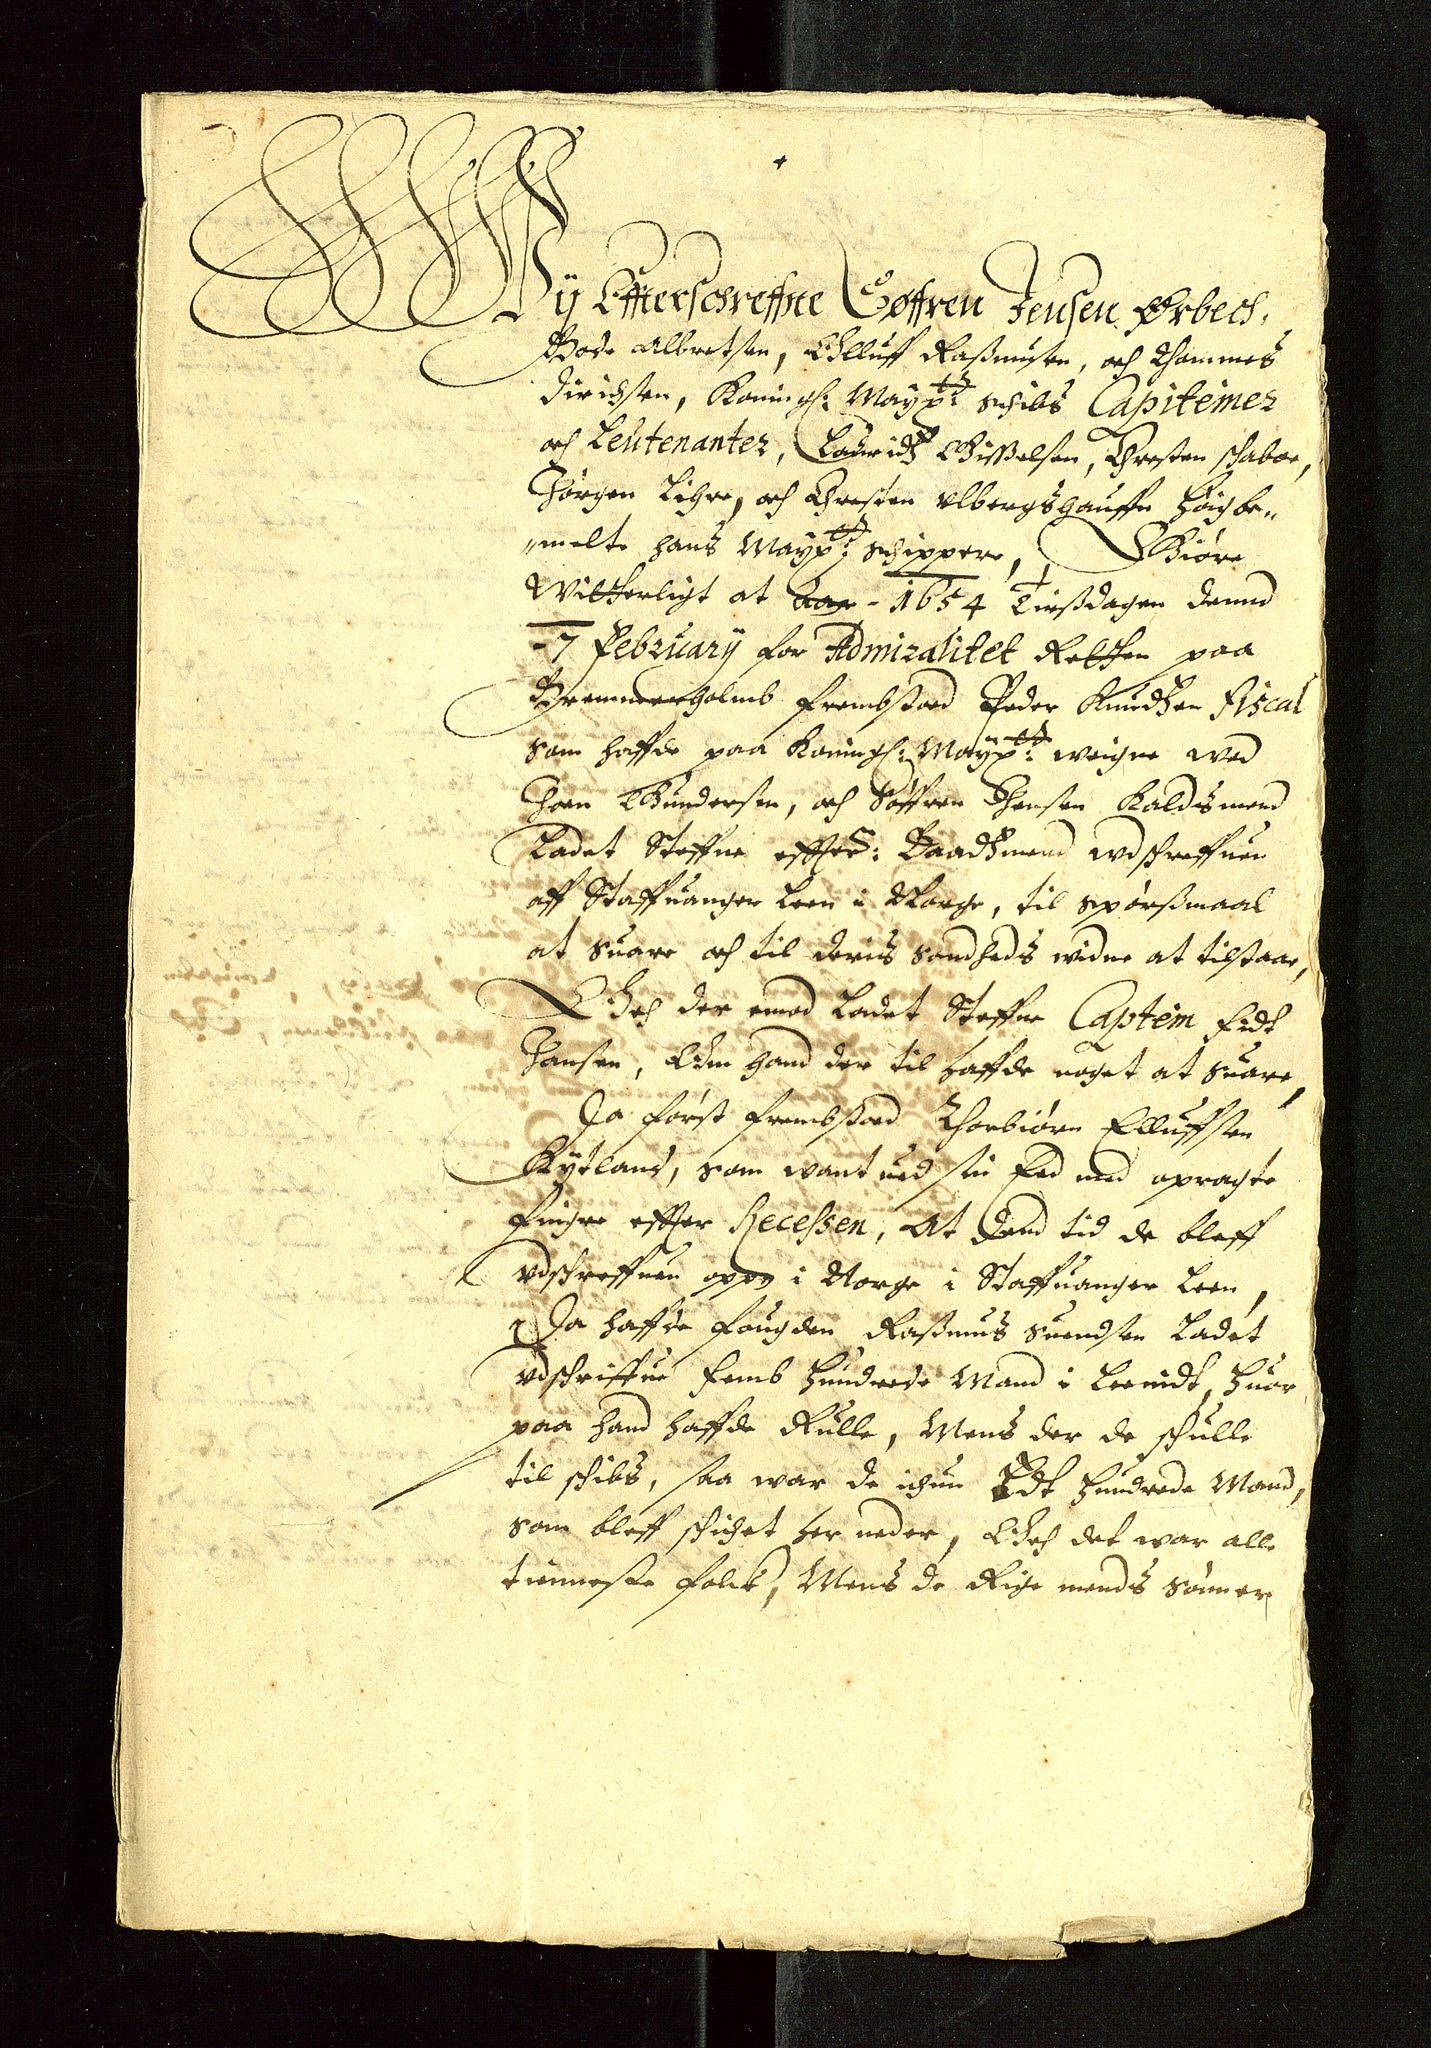 Wij Effterschreffne Søffren Jensen Ørbech,
Bode Albretsen, Olluff Rasmusen, och Thommes
Dirichsen, Kongl: Maÿts: schibs Capiteiner
och Leutenanter, Lauridtz Gisselsen, Chresten schaboe,
Jørgen Lihre, och Chresten Albergshauffn høigbe„
„melte hans Maÿts: schippere, Giøre
Witterligt at aar - 1654 Tirsdagen dennd
- 7 February for Admiralitet Retten paa
Bremmerholmb frembstoed Peder Knudtzen Fiscal
som haffde paa Kongl: Maÿts: weigne wed
Joen Gundersen, och Søffren Jensen Kaldsmend
Ladet Steffne effters: Baadtzmend wdschreffuen
aff Staffuanger Leen i Norge, til spørsmaal
at suare och til deris sandheds widne at tilstaae,
Och der emod Ladet Steffne Captein Eidt
Hansen, Om hand der til haffde noget at suare,
Da først frembstoed Thorbiørn Elluffsen
Rytland, som want ued sin Eed med opragte
fingre effter Recessen, At dend tid de bleff
vdschreffuen oppe i Norge i Staffuanger Leen,
Da haffde fougden Rasmus Suendsen Ladet
vdschriffue femb hundrede Mand i Leenidt, huor
paa hand haffde Rulle, Mens der de schulle
til schibs, saa war de ichun Edt hundrede Mand,
som bleff schichet her neder, Och det war alle
tienneste folck, Mens de Rige mends sønner